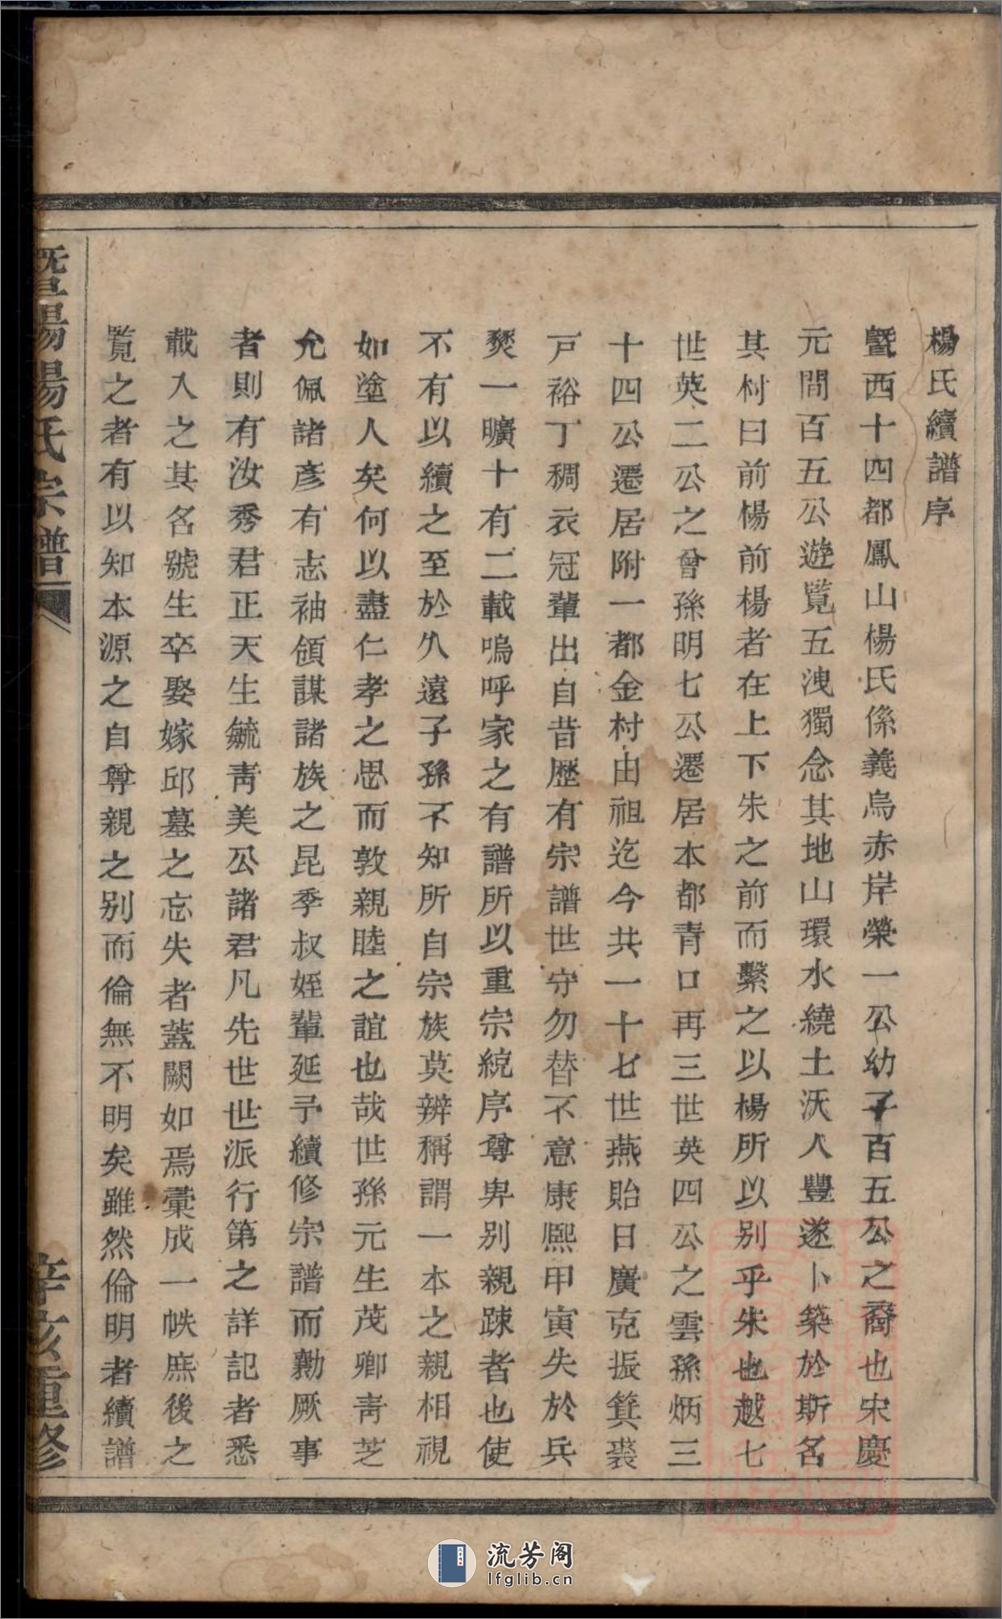 楊氏續譜序
暨西十四都鳳山楊氏係義烏赤岸榮一公幼子百五公之裔也宋慶
元間百五公遊覽五洩獨念其地山環水繞土沃人豐遂卜築於斯名
其村曰前楊前楊者在上下朱之前而繫之以楊所以别乎朱也越七
世英二公之曾孫明七公遷居本都青口再三世英四公之雲孫炳三
十四公遷居附一都金村由祖迄今共一十七世燕貽日廣克振箕裘
戸裕丁稠衣冠輩出自昔歷有宗譜世守勿替不意康熙甲寅失於兵
燹一曠十有二載嗚呼家之有譜所以重宗統序尊卑别親踈者也使
不有以續之至於久遠子孫不知所自宗族莫辨稱謂一本之親相視
如塗人矣何以盡仁孝之思而敦親睦之誼也哉世孫元生茂卿靑芝
允佩諸彥有志袖領謀諸族之昆季叔姪輩延予續修宗譜而勷厥事
者則有汝秀君正天生毓靑美公諸君凡先世世派行第之詳記者悉
載入之其名號生卒娶嫁邱墓之忘失者蓋闕如焉彙成一帙庶後之
覧之者有以知本源之自尊親之别而倫無不明矣雖然倫明者續譜
暨陽楊氏宗譜
辛亥重修
流芳阁
lfglib.cn